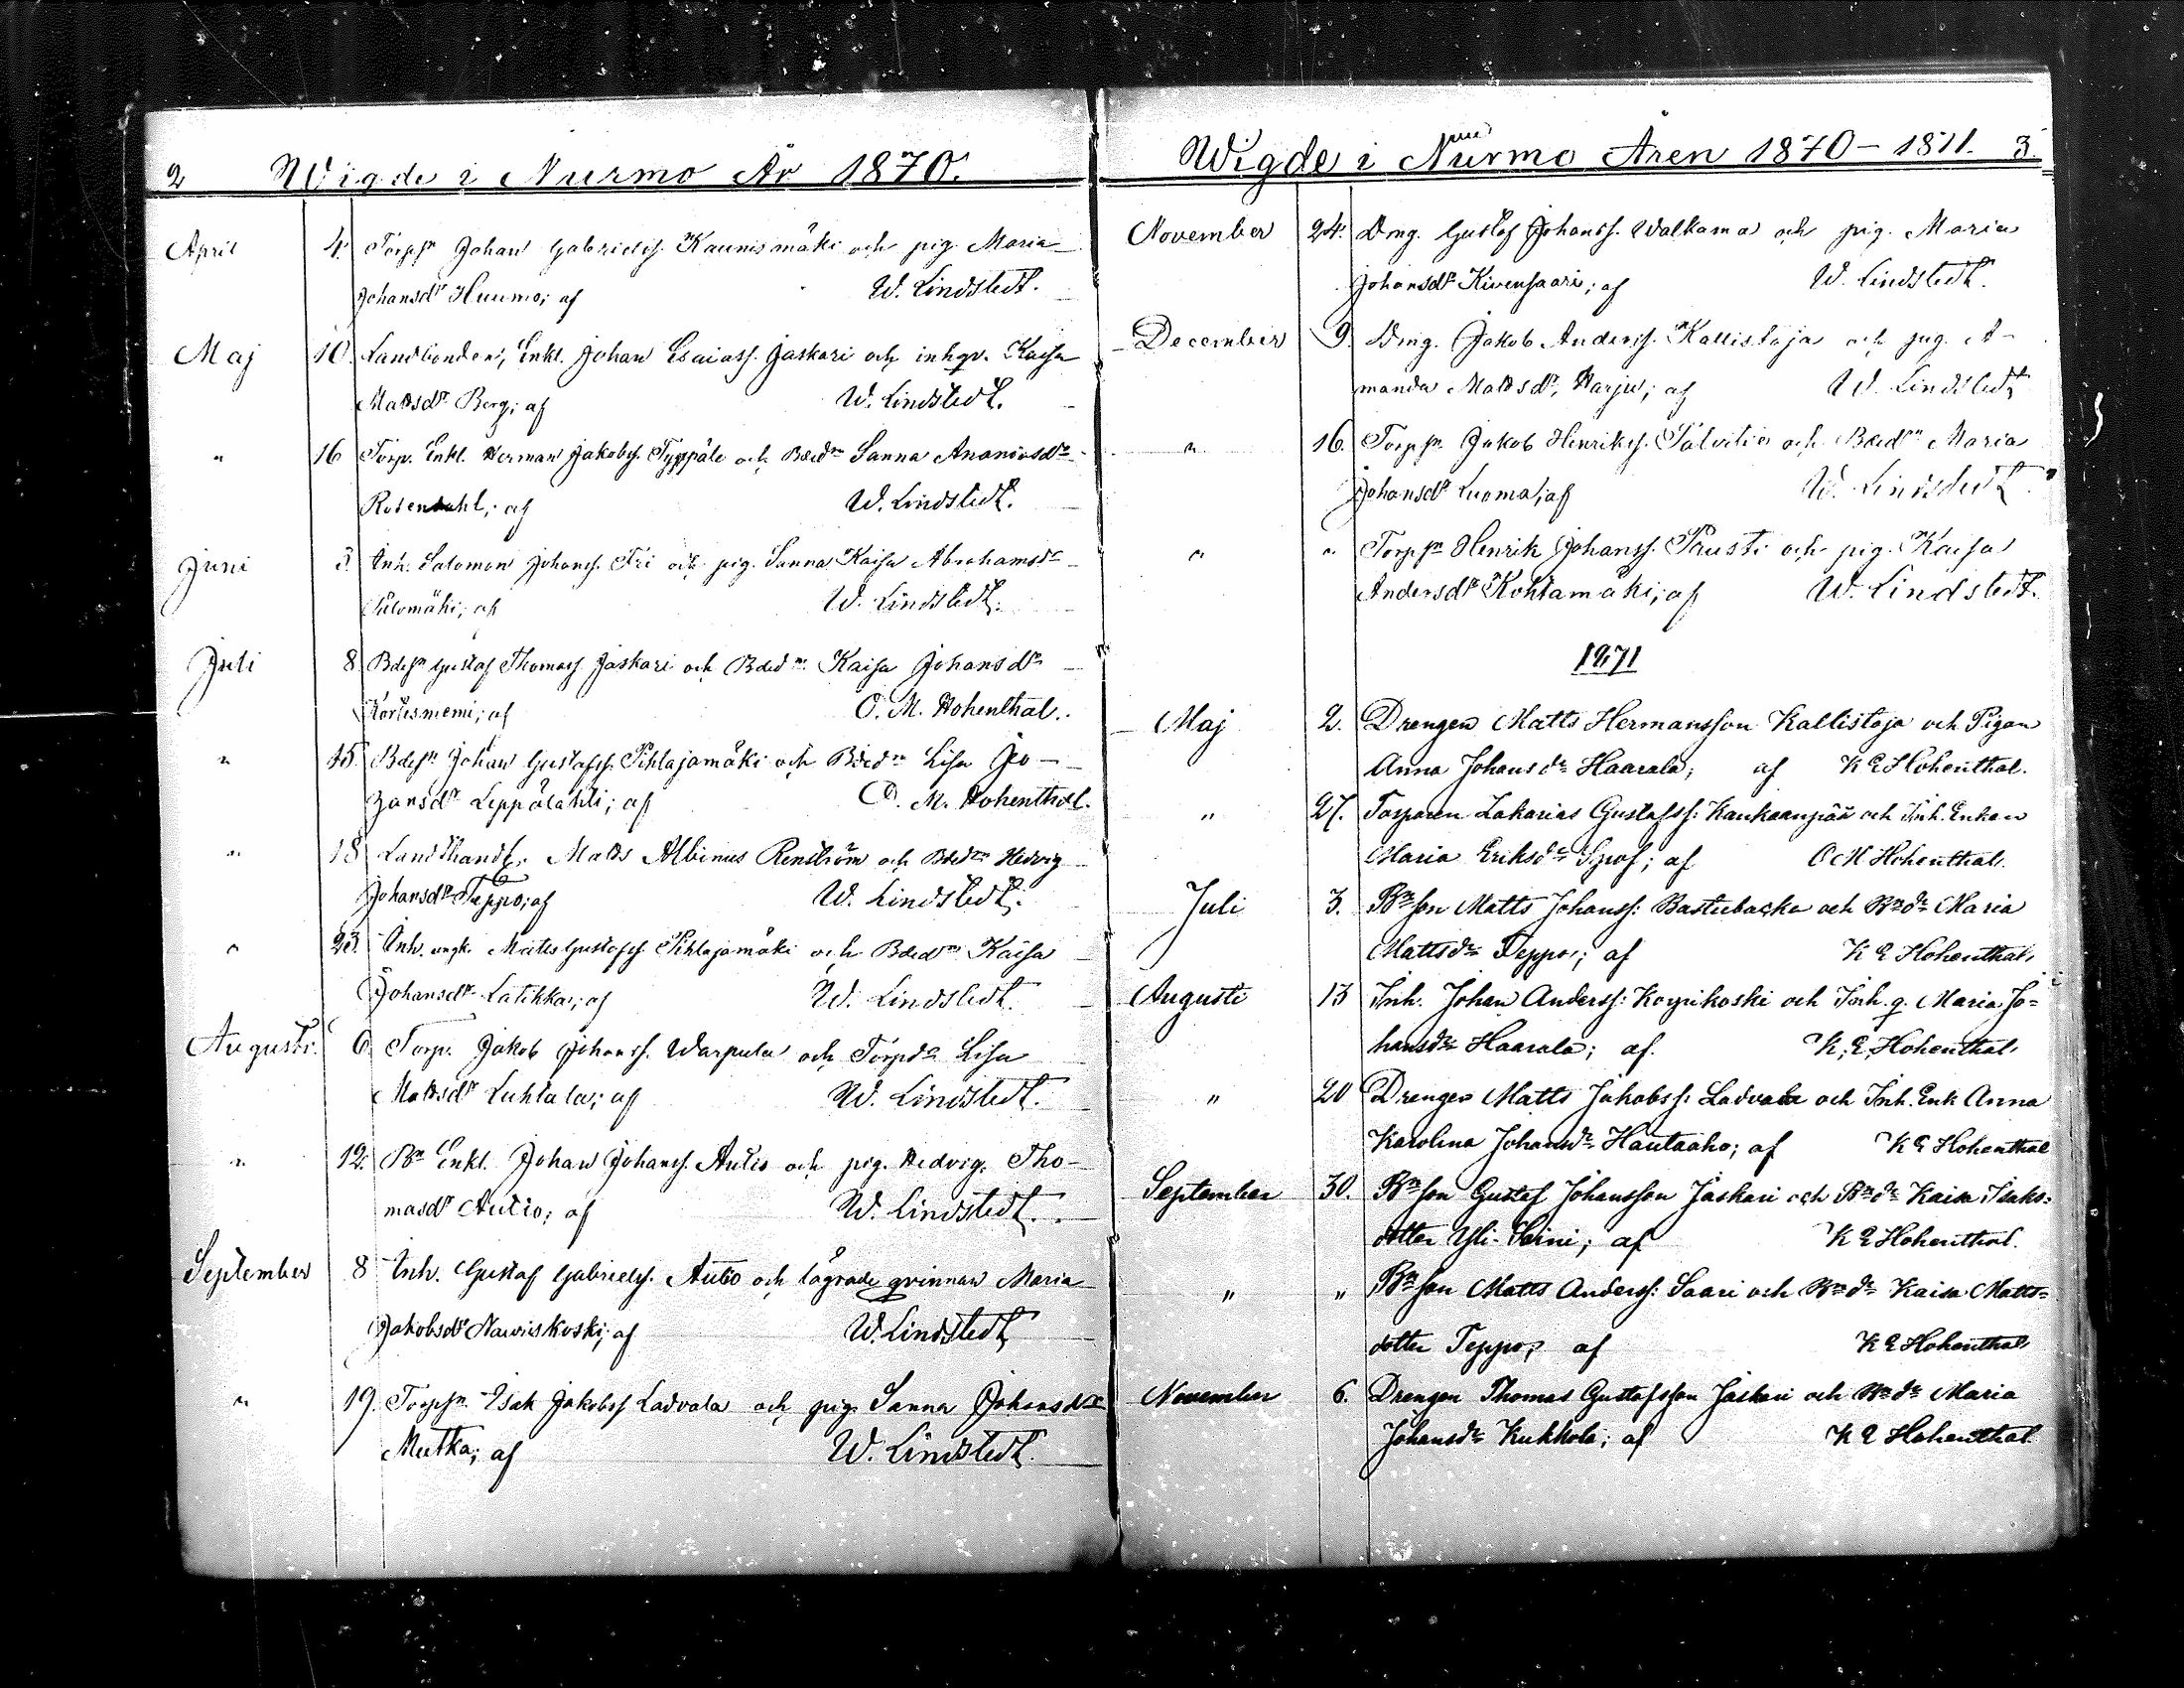 2 Wigde i Nurmo År 1870.
April 4. Torpsn Johan Gabrielss. Kaunismäki och pig. Maria
Johansdr Huumo; af W. Lindstedt.
Maj 10. Landbonden, Enkl. Johan Esaiass. Jaskari och inhqv. Kaisa
Mattsdr Berg; af W. Lindstedt.
" 16 Torp. Enkl. Herman Jakobss. Typpäle och Bdedr Sanna Ananiasdr
Rosendahl; af W. Lindstedt.
Juni 3. Inh. Salomon Johanss. Fri och pig. Sanna Kaisa Abrahamsdr
Salomäki; af W. Lindstedt.
Juli 8 Bdesn Gustaf Thomass Jaskari och Bdedr Kaisa Johansdr
Körtesniemi; af O. M. Hohenthal.
" 15. Bdesn Johan Gustafss. Pihlajamäki och Bdedr Lisa Jo-
hansdr Leppälahti; af O. M. Hohenthal.
" 18 Landthandl. Matts Albinus Renström och Bdedr Hedvig
Johansdr Teppo; af W. Lindstedt.
" 23. Inh. ungk. Matts Gustafss Pihlajamäki och Bdedr Kaisa
Johansdr Latikka; af W. Lindstedt.
Augusti. 6. Torp. Jakob Johanss. Warpula och Torpdr Lisa
Mattsdr Luhtala; af W. Lindstedt.
" 12. Bn Enkl. Johan Johanss. Autio och pig. Hedvig Tho-
masdr Autio; af W. Lindstedt.
September 8 Inh. Gustaf Gabrielss. Autio och lägrade qvinnan Maria
Jakobsdr Narviskoski; af W. Lindstedt
" 19. Torpsn Isak Jakobss Ladvala och pig. Sanna Johansdr
Mutka; af W. Lindstedt.
Wigde i Nurmo Åren 1870-1871. 3.
November 24. Dng. Gustaf Johanss. Walkama och pig. Maria
Johansdr Kivensaari; af W. Lindstedt.
December 9. Dng. Jakob Anderss. Kallistoja och pig. A-
manda Mattsdr Harju; af W. Lindstedt
" 16. Torpsn Jakob Henrikss. Salvitie och Bdedr Maria
Johansdr Luoma; af W. Lindstedt
" " Torpsn Henrik Johanss. Prusti och pig. Kaisa
Andersdr Kohtamäki; af W. Lindstedt.
1871
Maj 2. Drengen Matts Hermansson Kallistoja och Pigan
Anna Johansdr Haarala; af K E Hohenthal.
" 27. Torparen Zakarias Gustafss: Kankaanpää och Inh. Enkan
Maria Eriksdr af O M Hohenthal.
Juli 3. Bnson Matts Johanss: Bastubacka och Bndr Maria
Mattsdr Teppo; af K E Hohenthal.
Augusti 13 Inh. Johan Anderss: Koyrikoski och Inh. q. Maria Jo=
hansdr Haarala; af K. E. Hohenthal.
" 20 Drengen Matts Jakobss: Ladvala och Inh. Enk Anna
Karolina Johansdr Hautaaho; af K E Hohenthal
September 30. Bnson Gustaf Johansson Jaskari och Bndr Kaisa Isaks=
dotter Yli-Heini; af K E Hohenthal.
" " Bnson Matts Anderss: Saari och Bndr Kaisa Matts=
dotter Teppo; af K E Hohenthal
November 6. Drengen Thomas Gustafsson Jaskari och Bndr Maria
Johansdr Kukkola; af K E Hohenthal.